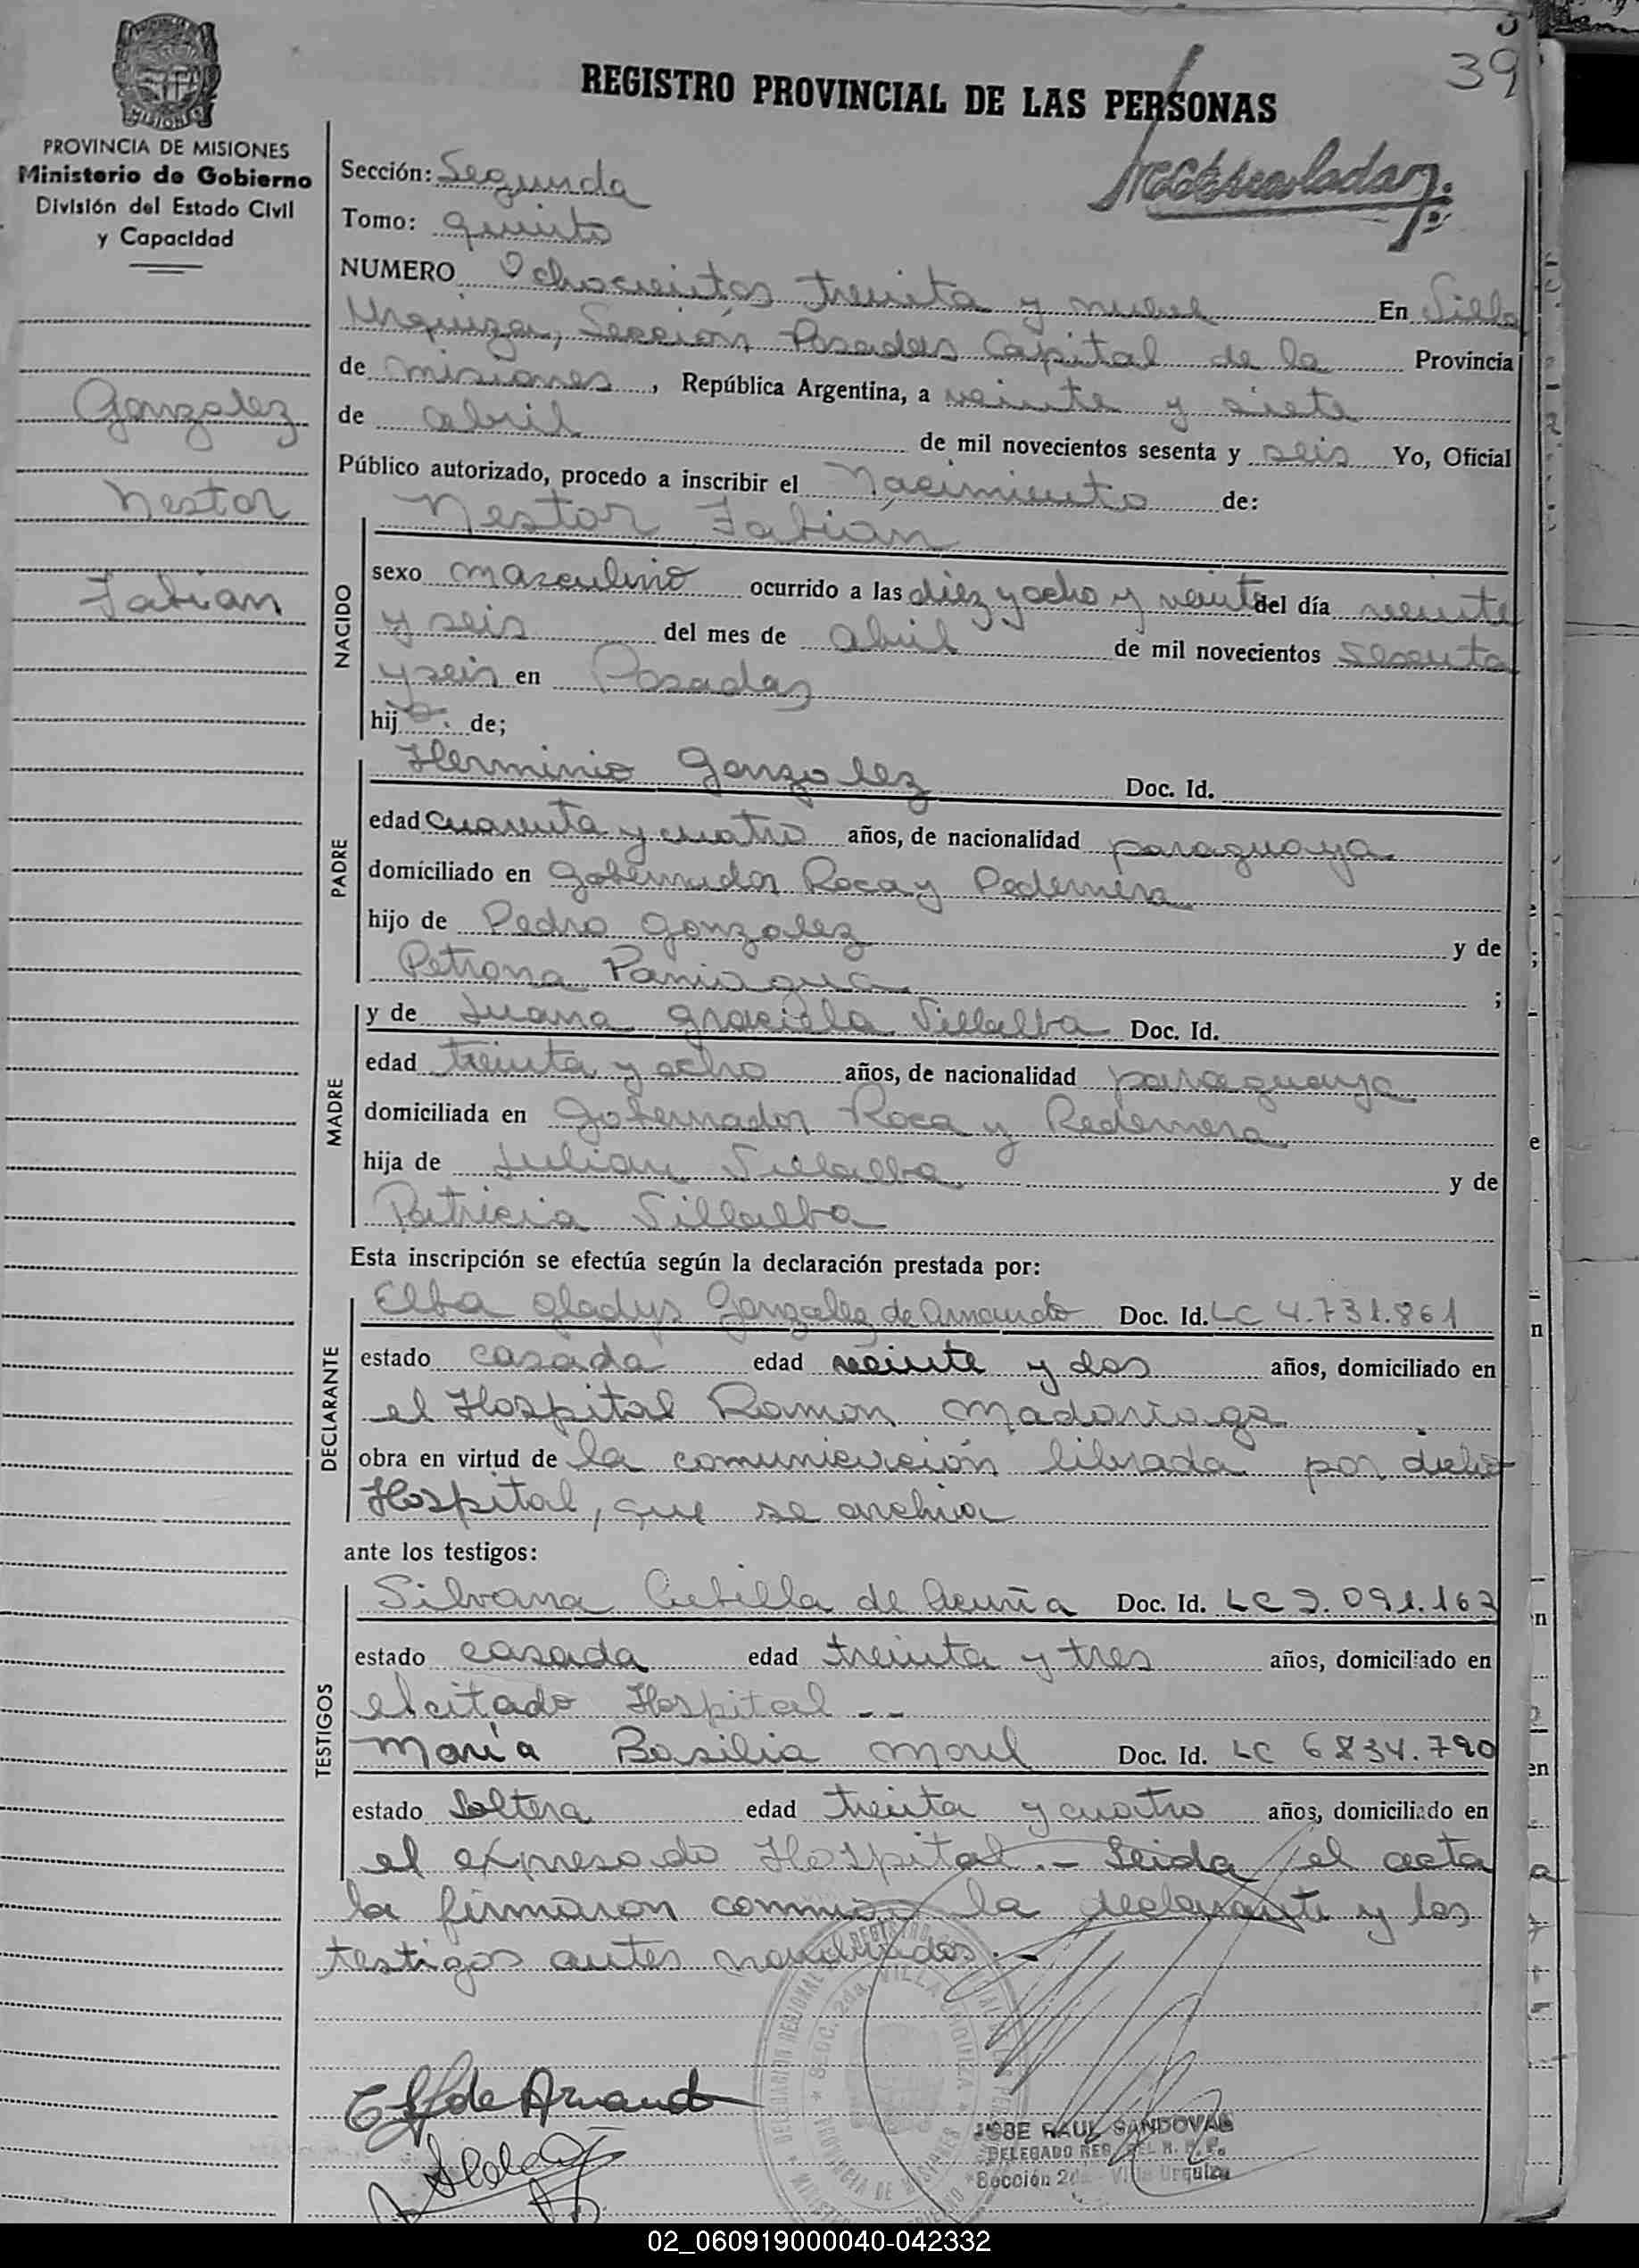 39
REGISTRO PROVINCIAL DE LAS PERSONAS
PROVINCIA DE MISIONES
Ministerio de Gobierno
División del Estado Civil
y Capacidad
Gonzalez
Nestor
Fabian
Sección: Segunda
Tomo: quinto
NUMERO Ochocientos treinta y nueve En Villa
Urquiza, Sección Posadas Capital de la Provincia
de misiones, República Argentina, a veinte y siete
de abril de mil novecientos sesenta y seis Yo, Oficial
Público autorizado, procedo a inscribir el Nacimiento de:
Nestor Fabian
NACIDO
sexo masculino ocurrido a las diez y ocho y veinte del día veinte
y seis del mes de abril de mil novecientos sesenta
y seis en Posadas
hijo. de;
PADRE
Herminio Gonzalez Doc. Id.
edad cuarenta y cuatro años, de nacionalidad paraguaya
domiciliado en Gobernador Roca y Pedernera
hijo de Pedro Gonzalez y de
Petrona Paniagua ;
MADRE
y de Juana Graciela Villalba Doc. Id.
edad treinta y ocho años, de nacionalidad paraguaya
domiciliada en Gobernador Roca y Pedernera
hija de Julian Villalba y de
Patricia Villalba
Esta inscripción se efectúa según la declaración prestada por:
DECLARANTE
Elba Gladys Gonzalez de Arnaudo Doc. Id. LC 4.731.861
estado casada edad veinte y dos años, domiciliado en
el Hospital Ramon Madariaga
obra en virtud de la comunicación librada por dicho
Hospital, que se archiva
ante los testigos:
TESTIGOS
Silvana de Acuña Doc. Id. LC
estado casada edad treinta y tres años, domiciliado en
el citado Hospital --
María Basilia Morel Doc. Id. LC 6834.790
estado Soltera edad treinta y cuatro años, domiciliado en
el expresado Hospital.- Leida el acta
la firmaron conmigo la declarante y los
testigos antes nombrados.-
JOSE RAUL SANDOVAL
DELEGADO REG. DEL R. P. P.
Sección 2da - Villa Urquiza
02_060919000040-042332